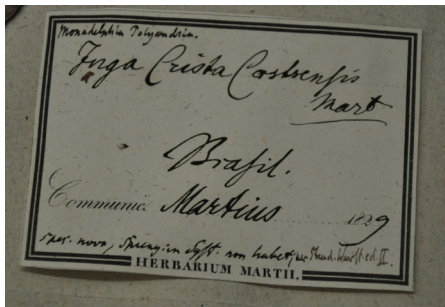 Monadelphia Polyandria.
Inga Crista Castrensis
Mart
Brasil.
Communic. Martius 1829
spec. nova, Spreng. in Syst. non habet, nec Steud. ed. II.
HERBARIUM MARTII.